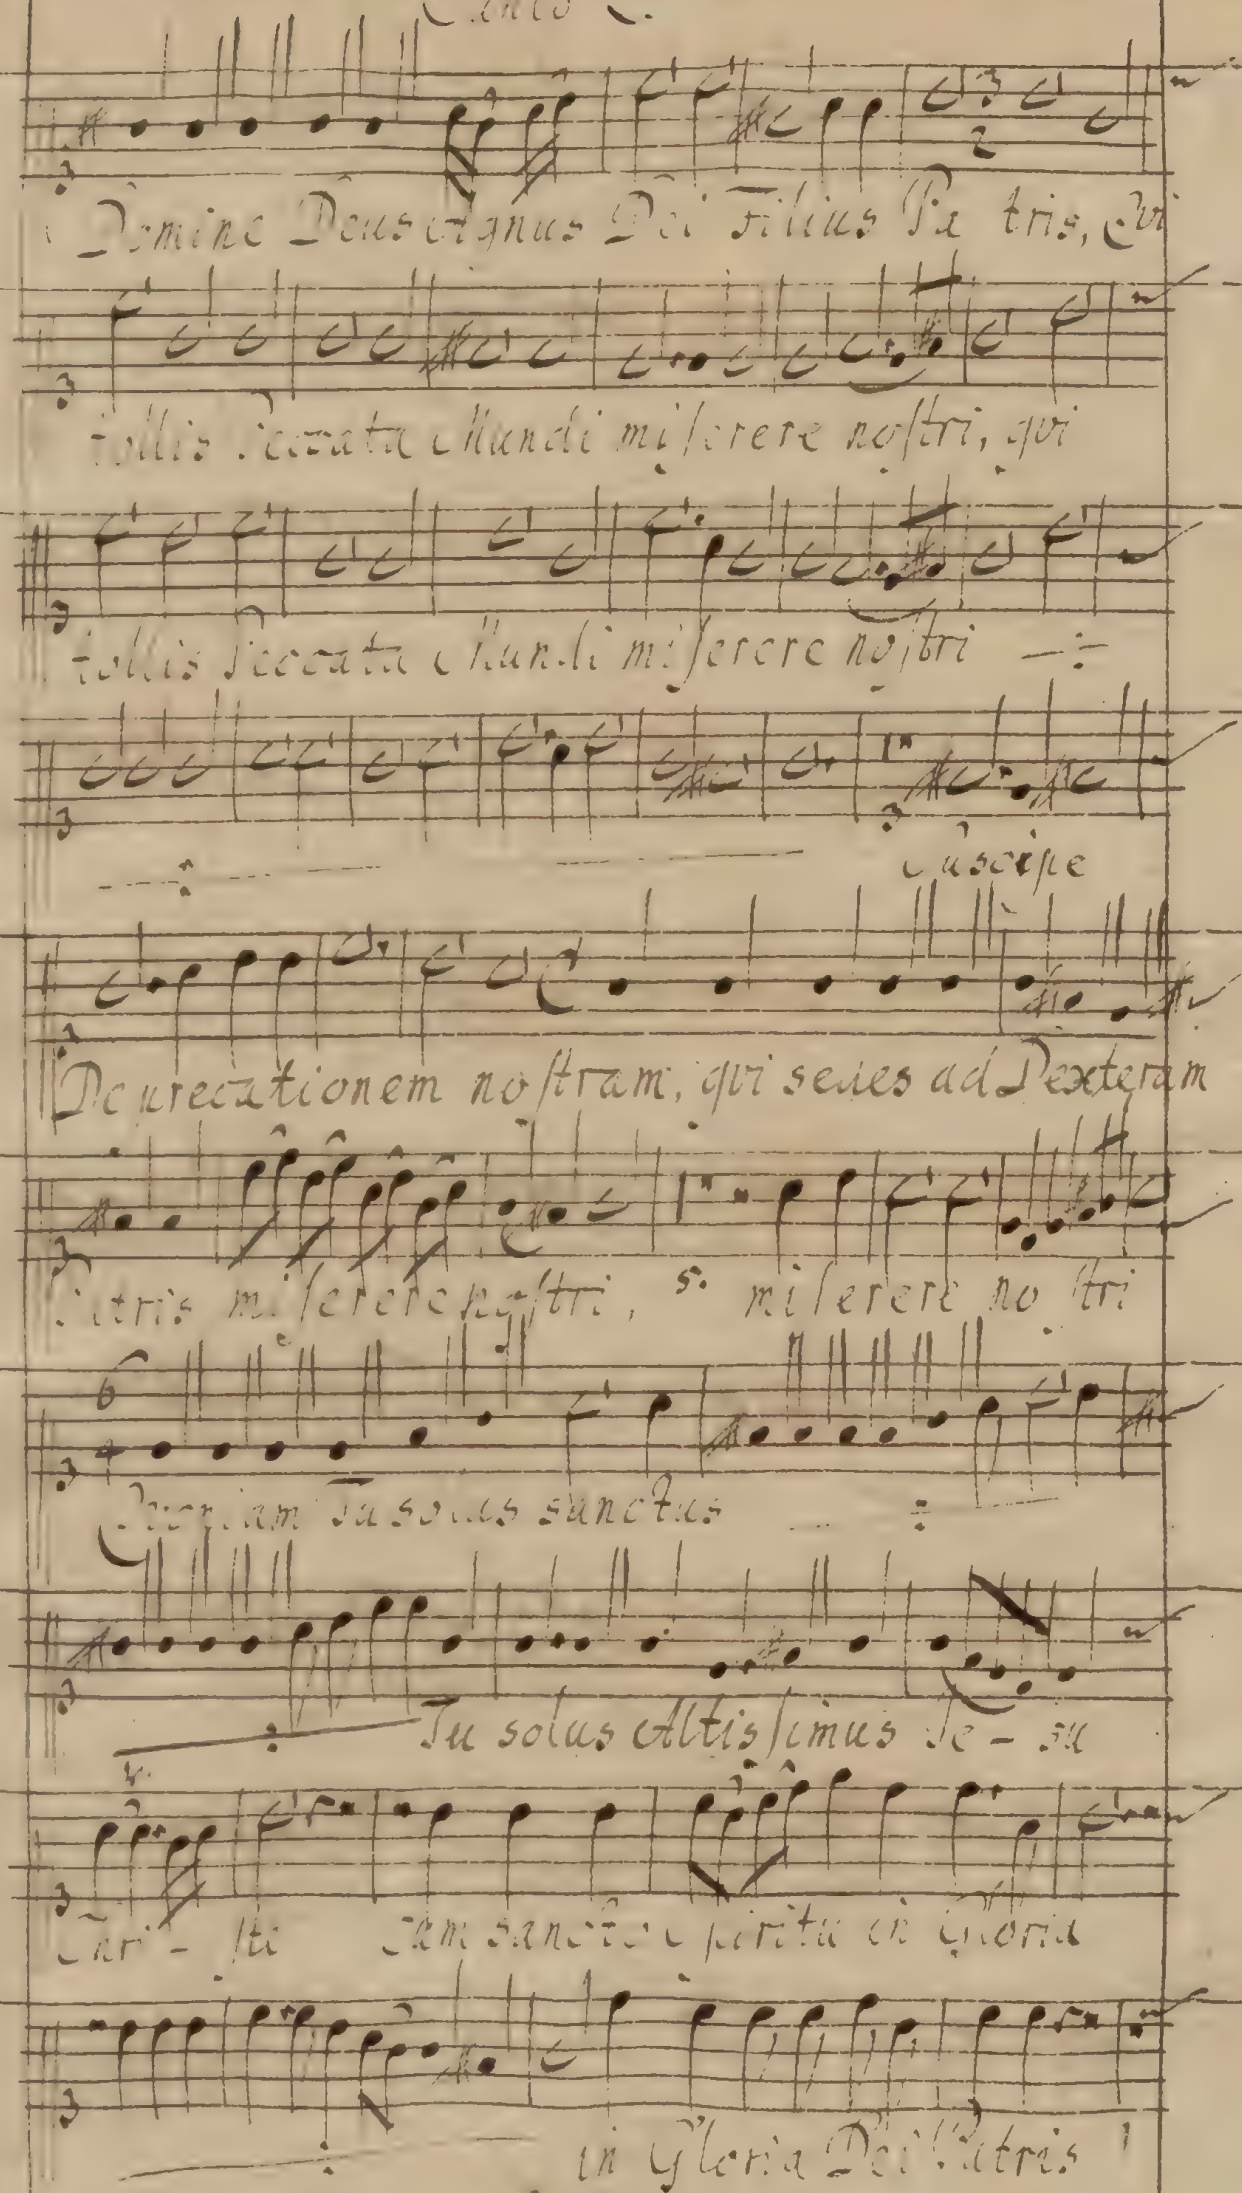 Canto 2.
Domine Deus Agnus Dei Filius Pa tris, Qvi
tollis Peccata Mundi miſerere noſtri, qvi
tollis Peccata Mundi miſerere noſtri
Suscipe
Deprecationem noſtram, qvi sedes ad Dexteram
Patris miſerere noſtri, 5. miſerere no ſtri
Qvoniam Tu solus sanctus
Tu solus Altisſimus Je - su
Chri - ſte Cum sancto Spiritu in Gloria
in Gloria Dei Patris